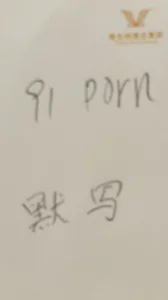 91 porn
默写